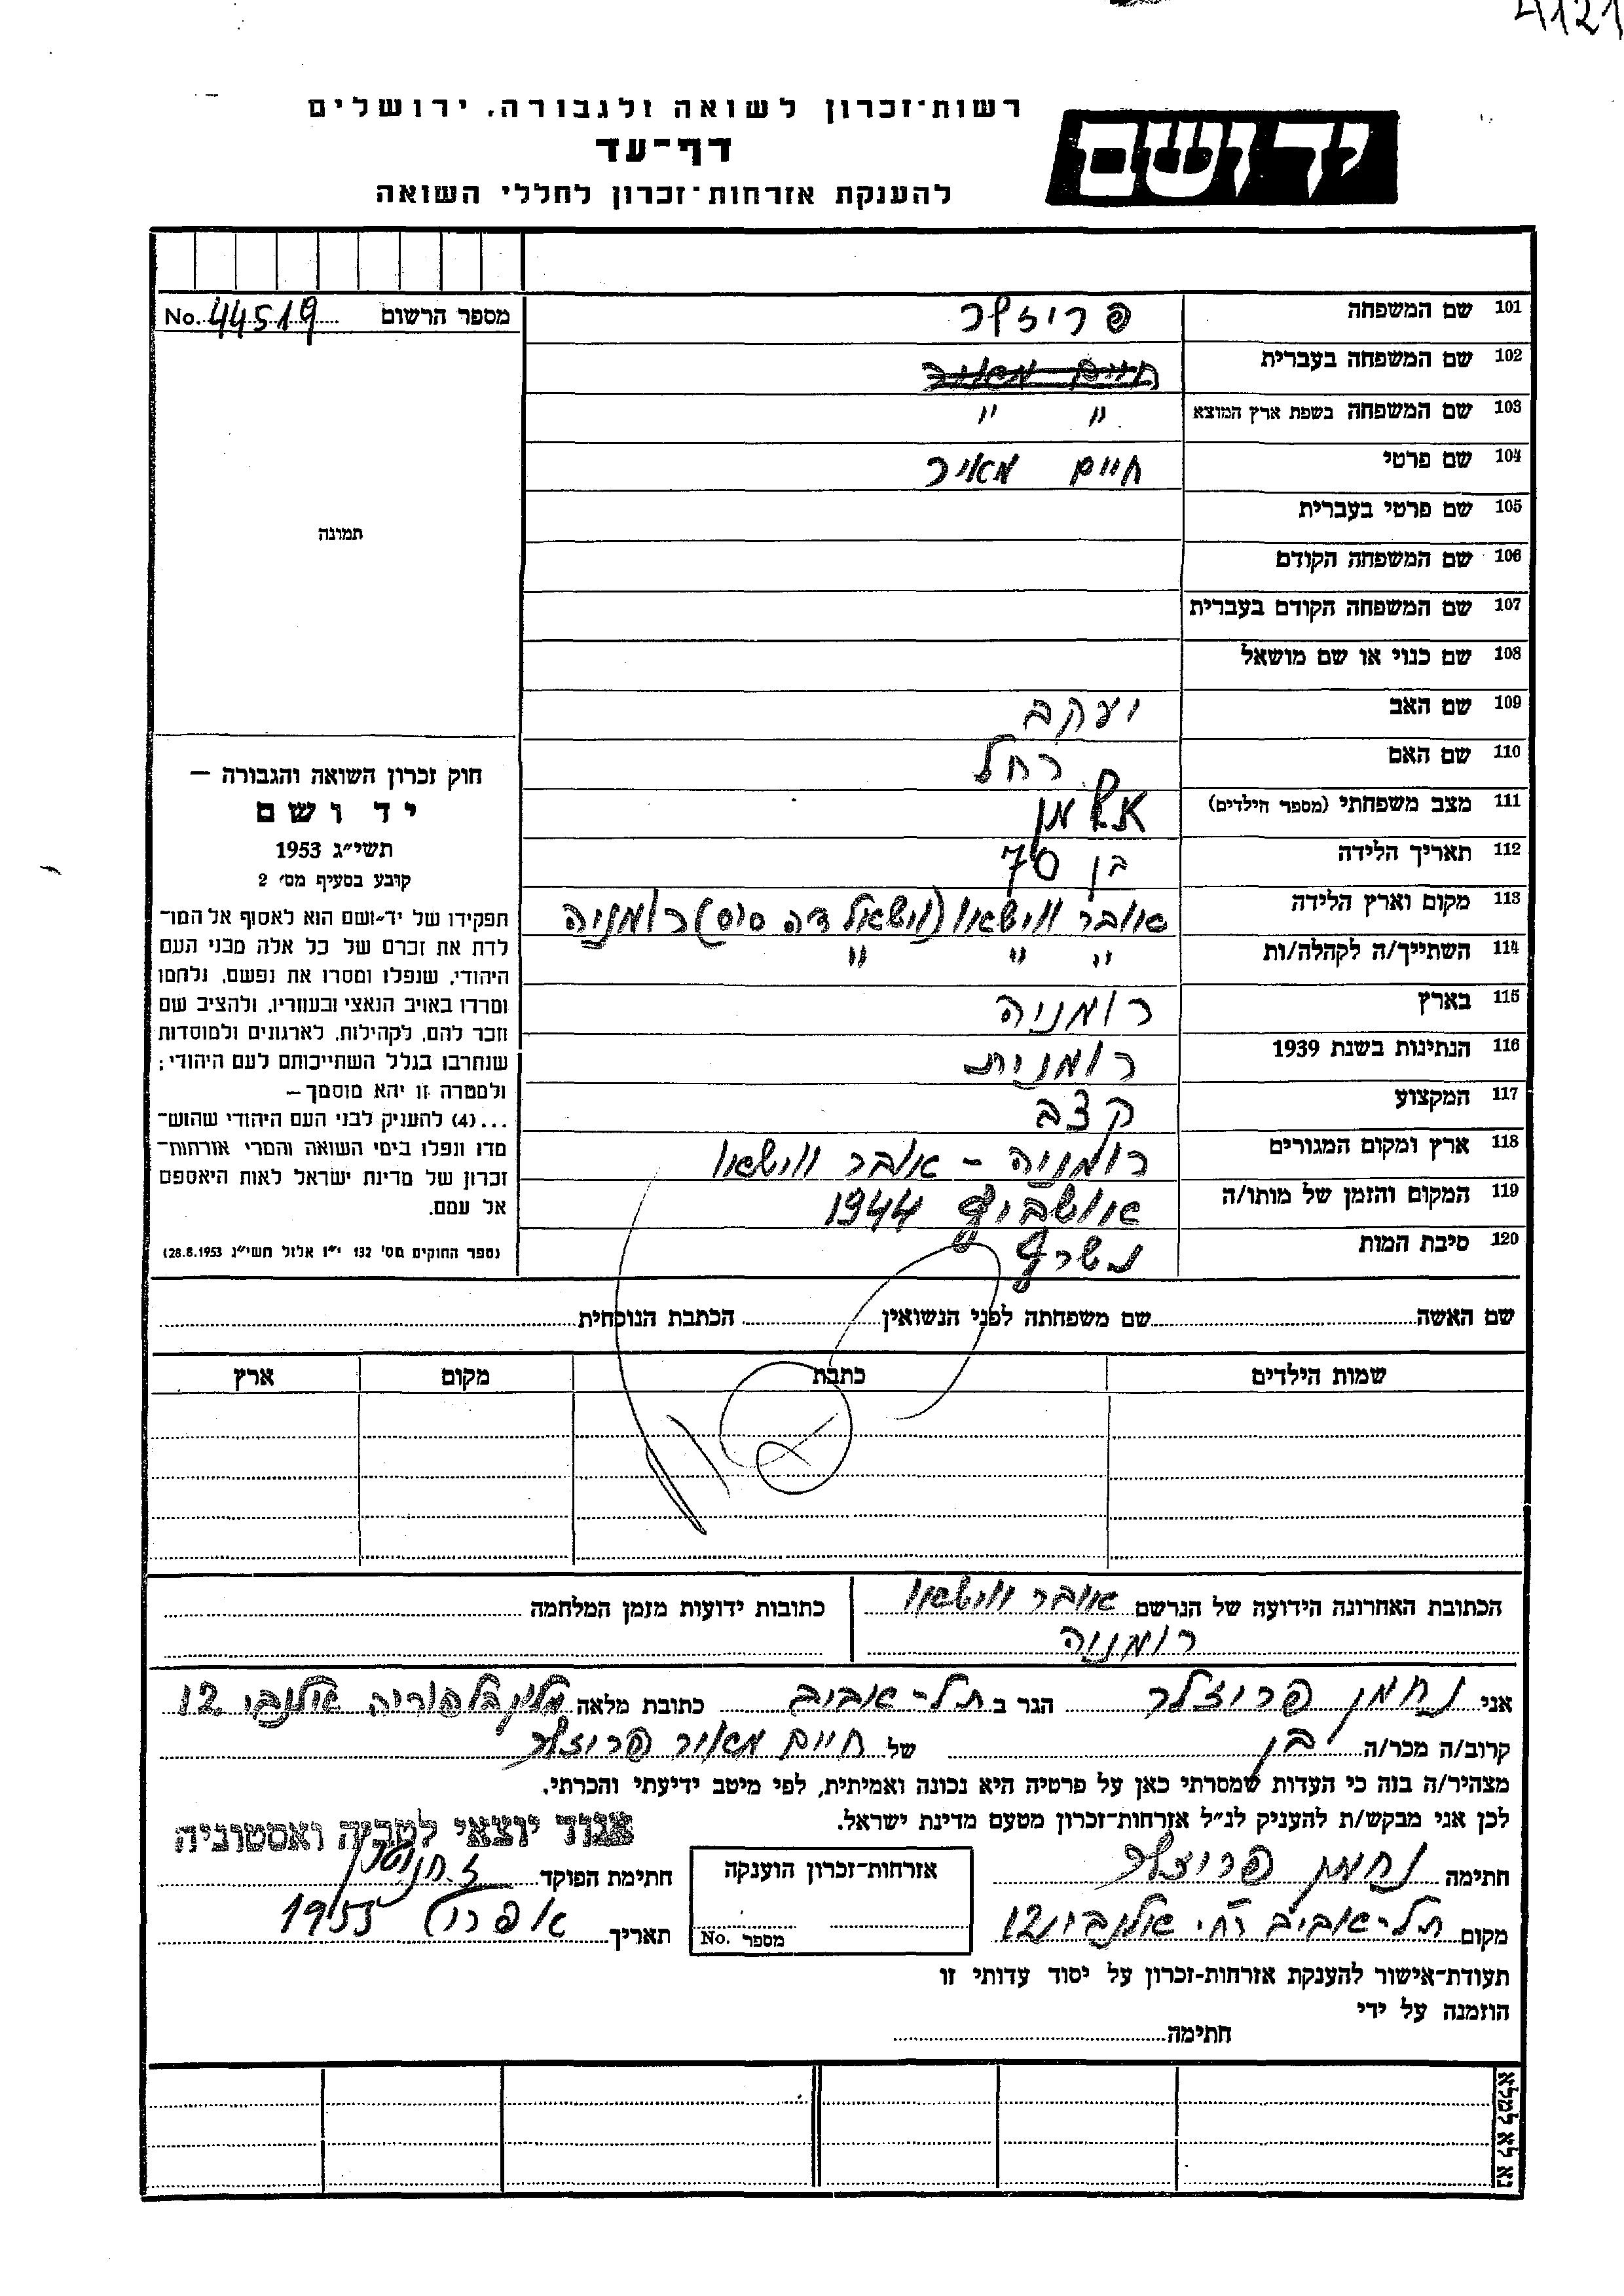 4121
רשות-זכרון לשואה ולגבורה, ירושלים
דף-עד
להענקת אזרחות-זכרון לחללי השואה
יד ושם
מספר הרשום No. 44519
101 שם המשפחה פריזלר
102 שם המשפחה בעברית חיים מאיר
103 שם המשפחה בשפת ארץ המוצא " "
104 שם פרטי חיים מאיר
105 שם פרטי בעברית
106 שם המשפחה הקודם
107 שם המשפחה הקודם בעברית
108 שם כנוי או שם מושאל
109 שם האב יעקב
110 שם האם רחל
111 מצב משפחתי (מספר הילדים) אלמן
112 תאריך הלידה בן 70
113 מקום וארץ הלידה אובר ווישאו (וישאול דה סוס) רומניה
114 השתייך/ה לקהלה/ות " " "
115 בארץ רומניה
116 הנתינות בשנת 1939 רומנית
117 המקצוע קצב
118 ארץ ומקום המגורים רומניה - אובר ווישאו
119 המקום והזמן של מותו/ה אושביץ 1944
120 סיבת המות נשרף
תמונה
חוק זכרון השואה והגבורה —
יד ושם
תשי״ג 1953
קובע בסעיף מס׳ 2
תפקידו של יד-ושם הוא לאסוף אל המו־
לדת את זכרם של כל אלה מבני העם
היהודי, שנפלו ומסרו את נפשם, נלחמו
ומרדו באויב הנאצי ובעוזריו, ולהציב שם
וזכר להם, לקהילות, לארגונים ולמוסדות
שנחרבו בגלל השתייכותם לעם היהודי;
ולמטרה זו יהא מוסמך —
...(4) להעניק לבני העם היהודי שהוש־
מדו ונפלו בימי השואה והמרי אזרחות־
זכרון של מדינת ישראל לאות היאספם
אל עמם.
(ספר החוקים מס׳ 132 י״ז אלול תשי״ג 28.8.1953)
שם האשה שם משפחתה לפני הנשואין הכתבת הנוכחית
שמות הילדים כתבת מקום ארץ
הכתובת האחרונה הידועה של הנרשם אובר ווישאו
רומניה
כתובות ידועות מזמן המלחמה
אני נחמן פריזלר הגר ב תל-אביב כתובת מלאה אלנבי 12
קרוב/ה מכר/ה בן של חיים מאיר פריזלר
מצהיר/ה בזה כי העדות שמסרתי כאן על פרטיה היא נכונה ואמיתית, לפי מיטב ידיעתי והכרתי.
לכן אני מבקש/ת להעניק לנ״ל אזרחות-זכרון מטעם מדינת ישראל.
אגוד יוצאי לטביה ואסטוניה
חתימה נחמן פריזלר
אזרחות-זכרון הוענקה
חתימת הפוקד
מקום תל-אביב רח׳ אלנבי 12
מספר No.
תאריך אפריל 1955
תעודת-אישור להענקת אזרחות-זכרון על יסוד עדותי זו
הוזמנה על ידי
חתימה
נא לא למלא